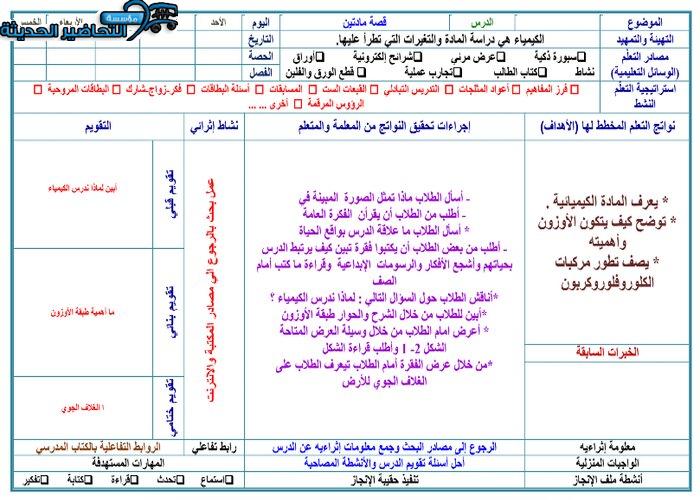 مؤسسة
التحاضير الحديثة
الموضوع
الدرس
قصة مادتين
اليوم
الأحد
الأربعاء
الخميس
التهيئة والتمهيد
الكيمياء هي دراسة المادة والتغيرات التي تطرأ عليها.
التاريخ
مصادر التعلم
(الوسائل التعليمية)
سبورة ذكية
عرض مرئي
شرائح إلكترونية
أوراق
نشاط
كتاب الطالب
تجارب عملية
قطع الورق والفلين
الحصة
الفصل
استراتيجية التعلم
النشط
فرز المفاهيم
أعواد المثلجات
التدريس التبادلي
القبعات الست
المسابقات
أسئلة البطاقات
فكر-زواج-شارك
البطاقات المروحية
الرؤوس المرقمة
أخرى ... ...
نواتج التعلم المخطط لها (الأهداف)
إجراءات تحقيق النواتج من المعلمة والمتعلم
نشاط إثرائي
التقويم
* يعرف المادة الكيميائية .
* توضح كيف يتكون الأوزون
وأهميته
* يصف تطور مركبات
الكلوروفلوروكربون
الخبرات السابقة
- أسأل الطلاب ماذا تمثل الصورة المبينة في
- أطلب من الطلاب أن يقرأن الفكرة العامة
* أسأل الطلاب ما علاقة الدرس بواقع الحياة
- أطلب من بعض الطلاب أن يكتبوا فقرة تبين كيف يرتبط الدرس
بحياتهم وأشجع الأفكار والرسومات الإبداعية وقراءة ما كتب أمام
الصف
*أناقش الطلاب حول السؤال التالي : لماذا ندرس الكيمياء ؟
*أبين للطلاب من خلال الشرح والحوار طبقة الأوزون
* أعرض امام الطلاب من خلال وسيلة العرض المتاحة
الشكل 2- 1 وأطلب قراءة الشكل
*من خلال عرض الفقرة أمام الطلاب تيعرف الطلاب على
الغلاف الجوي للأرض
عمل بحث بالرجوع الى مصادر المكتبة والانترنت
تقويم قبلي
أبين لماذا ندرس الكيمياء
تقويم بنائي
ما اهمية طبقة الأوزون
تقويم ختامي
١ الغلاف الجوي
معلومة إثرائيه
الرجوع إلى مصادر البحث وجمع معلومات إثرائيه عن الدرس
رابط تفاعلي
الروابط التفاعلية بالكتاب المدرسي
الواجبات المنزلية
أحل أسئلة تقويم الدرس والأنشطة المصاحبة
المهارات المستهدفة
أنشطة ملف الإنجاز
تنفيذ حقيبة الإنجاز
استماع
تحدث
قراءة
كتابة
تفكير